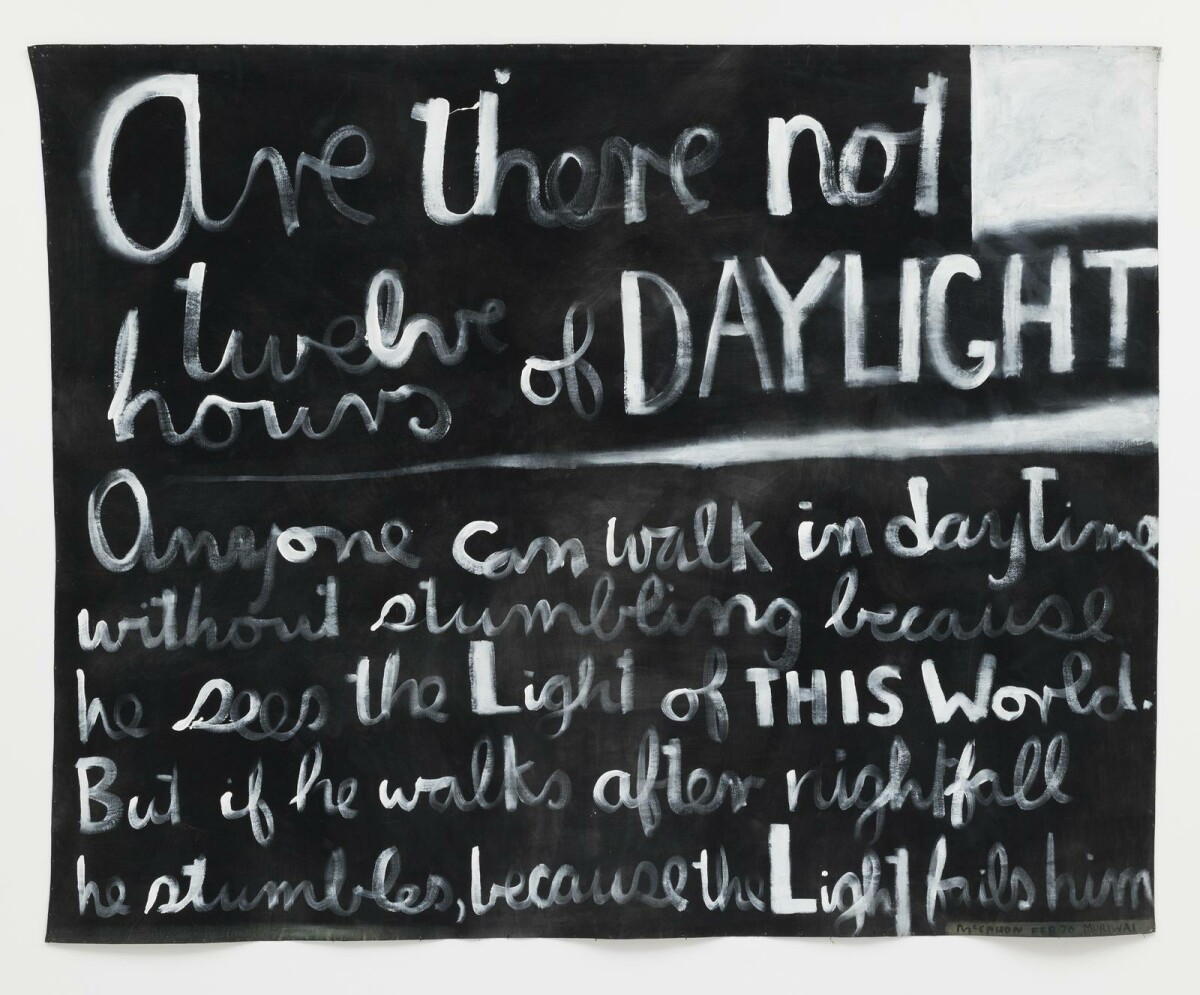 Are there not
twelve
hours of DAYLIGHT
Anyone can walk in dayTime
without stumbling because
he sees the Light of THIS World.
But if he walks after nightfall
he stumbles, because the Light fails him
McCAHON FEB 70 MURIWAI